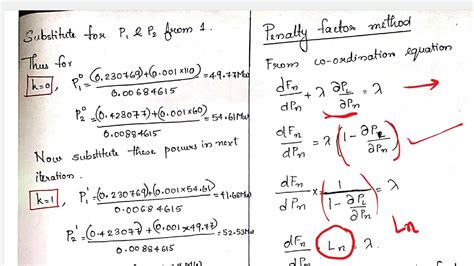 Substitute for P₁ & P₂ from 1.
Thus for
k=0, P₁⁰ = (0.230769)+(0.001×110) / 0.00684615 = 49.77MW
P₂⁰ = (0.423077)+(0.001×60) / 0.00884615 = 54.61MW
Now substitute these powers in next
iteration.
k=1, P₁' = (0.230769)+(0.001×54.61) / 0.00684615 = 41.68MW
P₂' = (0.42307)+(0.001×49.77) / 0.00884615 = 52.53MW
Penalty factor method
From co-ordination equation
dFn/dPn + λ ∂PL/∂Pn = λ
dFn/dPn = λ(1 - ∂PL/∂Pn)
dFn/dPn × (1 / (1 - ∂PL/∂Pn)) = λ
Ln
dFn/dPn Ln = λ.